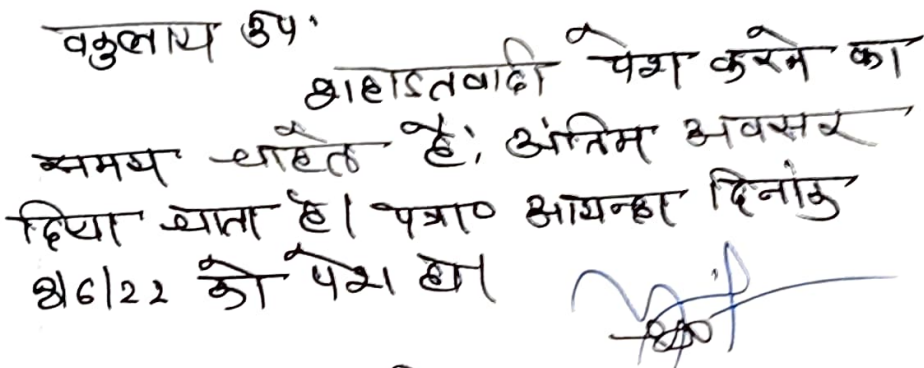 वकुलाय उप.
शहादतवादी पेश करने का
समय चाहते है, अंतिम अवसर
दिया जाता है। पत्रा० आयन्दा दिनांक
8/6/22 को पेश हो।